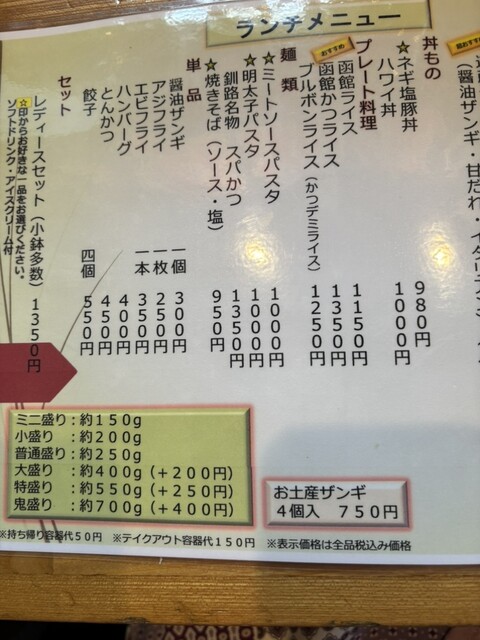 ランチメニュー
おすすめ
(醤油ザンギ・甘だれ・イタリアン
丼もの
☆ネギ塩豚丼 980円
ハワイ丼 1000円
プレート料理
函館ライス 1150円
おすすめ
函館かつライス 1350円
ブルボンライス(かつデミライス) 1250円
麺類
☆ミートソースパスタ 1000円
☆明太子パスタ 1000円
釧路名物 スパかつ 1350円
☆焼きそば(ソース・塩) 950円
単品
醤油ザンギ 一個 300円
アジフライ 一枚 250円
エビフライ 一本 350円
ハンバーグ 400円
とんかつ 450円
餃子 四個 550円
セット
レディースセット(小鉢多数) 1350円
☆印からお好きな一品をお選びください。
ソフトドリンク・アイスクリーム付
ミニ盛り:約150g
小盛り :約200g
普通盛り:約250g
大盛り :約400g(+200円)
特盛り :約550g(+250円)
鬼盛り :約700g(+400円)
お土産ザンギ
4個入 750円
※持ち帰り容器代50円 ※テイクアウト容器代150円 ※表示価格は全品税込み価格